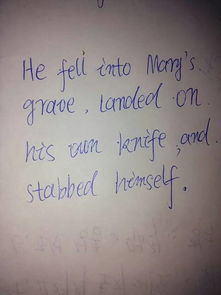 He fell into Mary's
grave, landed on
his own knife, and
stabbed himself.